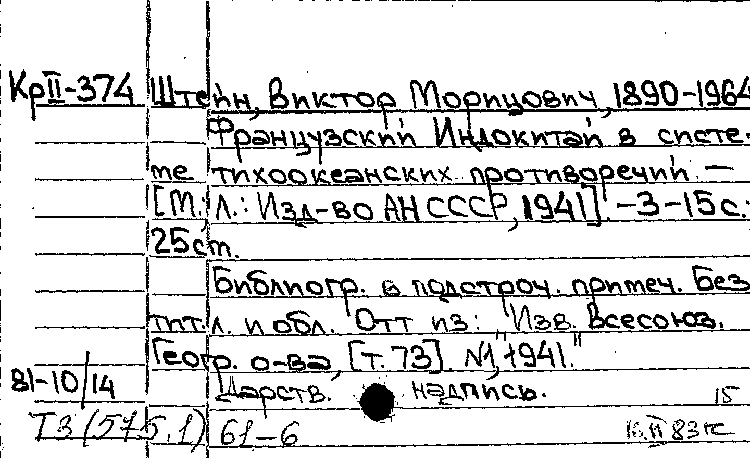 КрII-374 Штейн, Виктор Морицович, 1890-1964
Французский Индокитай в систе-
ме тихоокеанских противоречий. —
[М.; Л.: Изд-во АН СССР, 1941]. -3-15 с.;
25 см.
Библиогр. в подстроч. примеч. Без
тит. л. и обл. Отт из: "Изв. Всесоюз.
Геогр. о-ва, [т. 73]. №1, 1941."
81-10/14 Дарств. надпись. 15
T3(575.1) 61-6 83